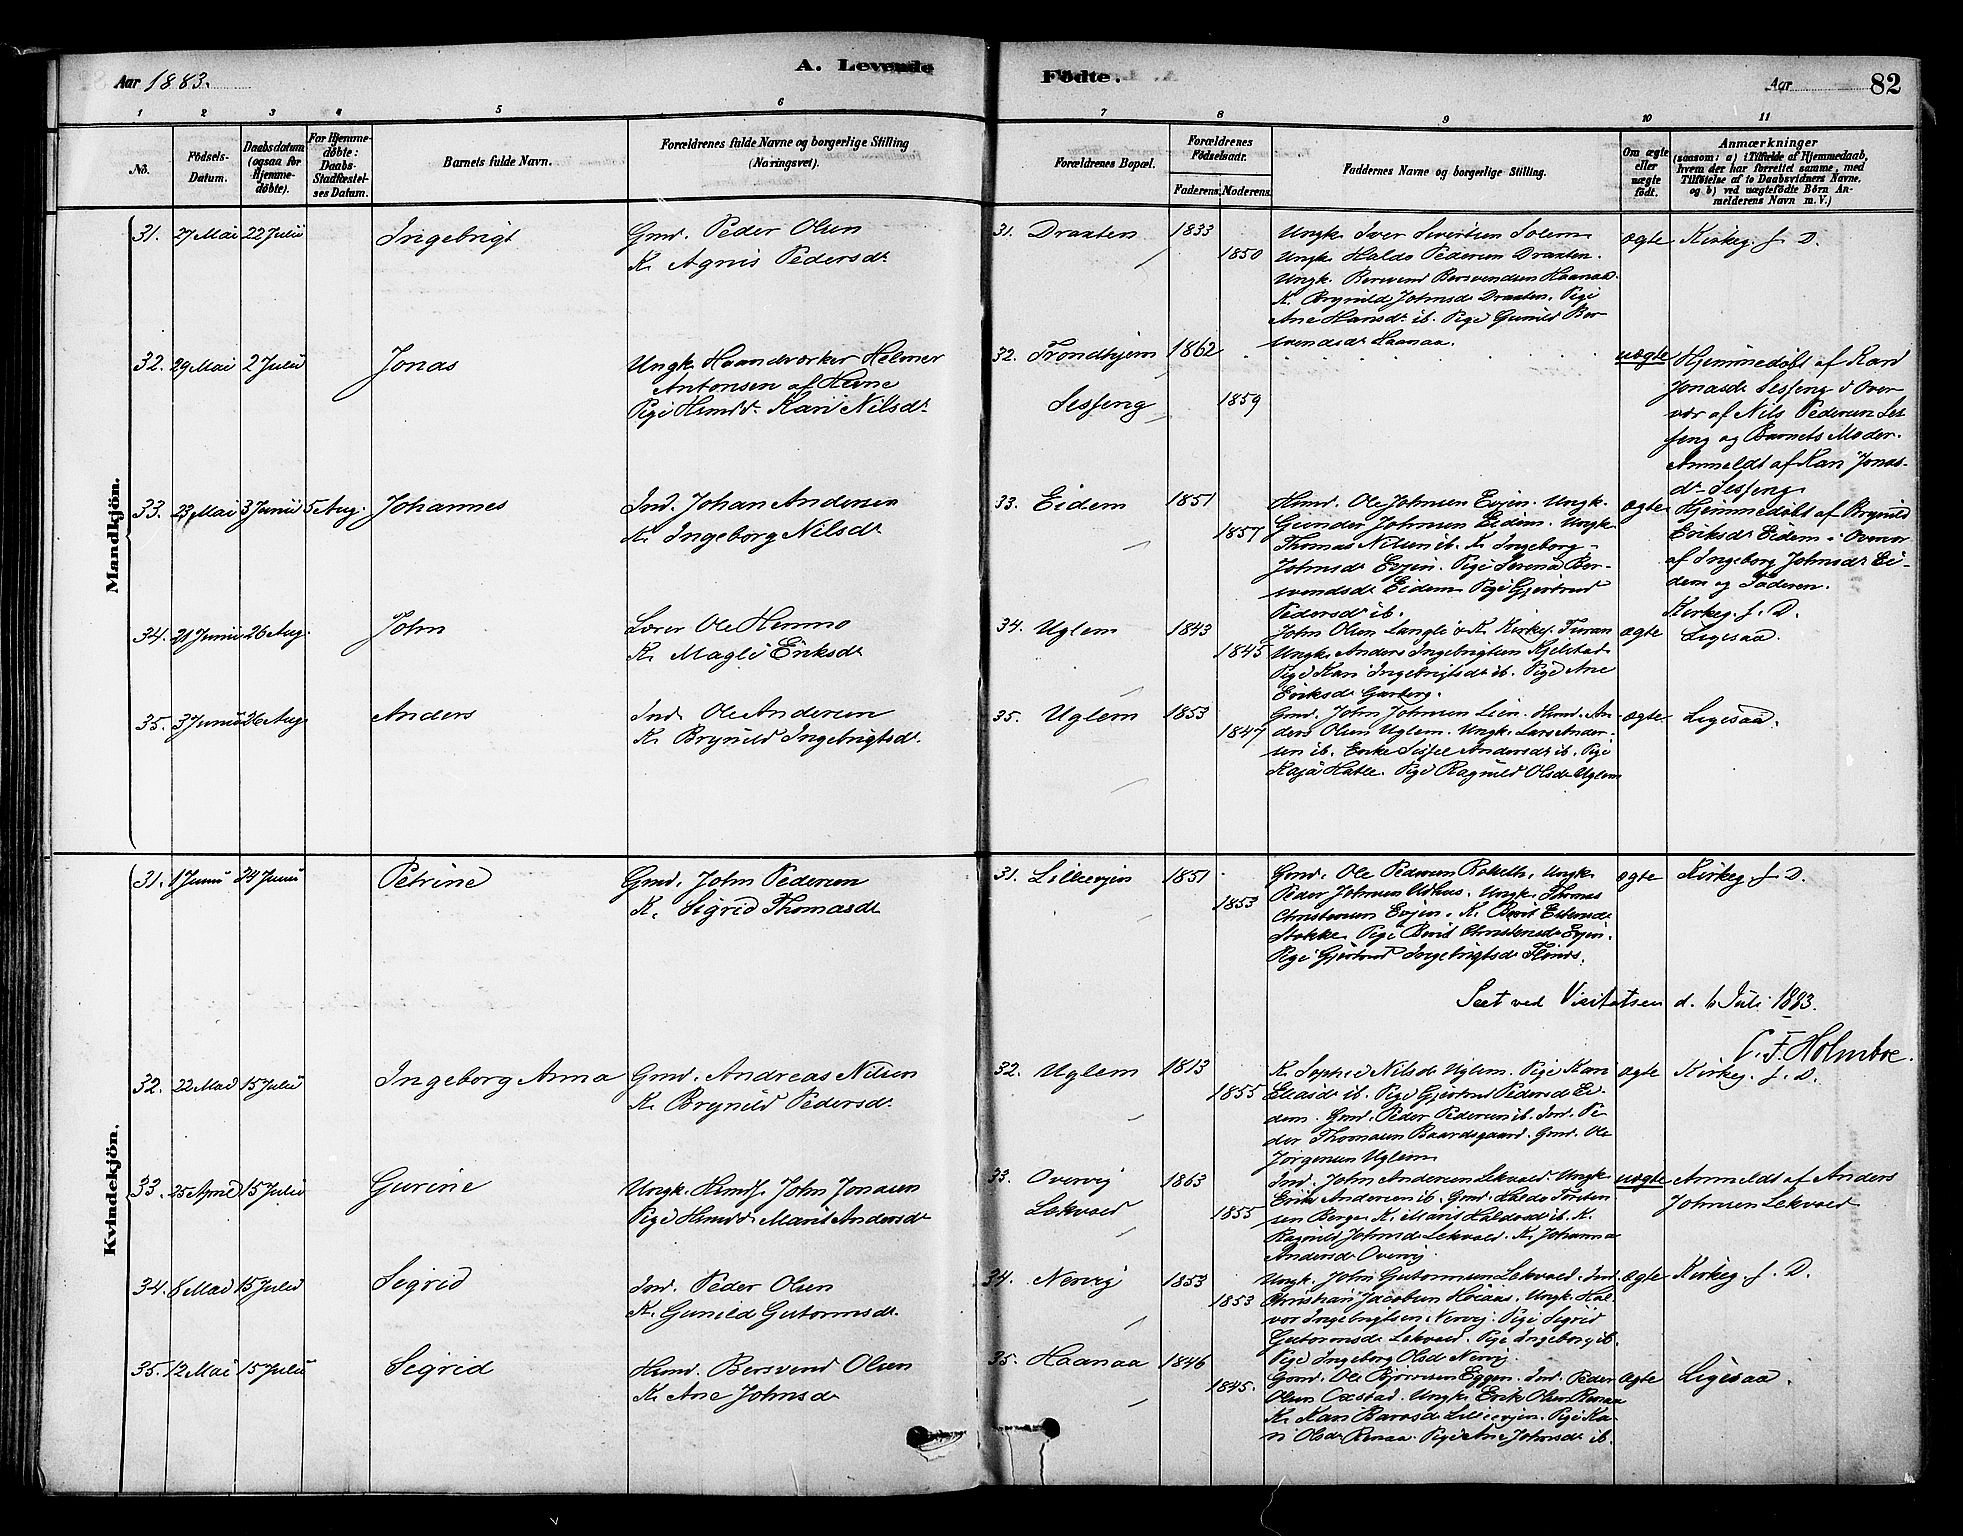 Aar 1883.
A. Levende
Födte.
Aar
82
1 2 3 4 5 6
7 8 9 10 11
No.
Födsels-Datum.
Daabsdatum (ogsaa for Hjemmedöbte).
For Hjemmedöbte: Daabs-Stadfæstelses Datum.
Barnets fulde Navn.
Forældrenes fulde Navne og borgerlige Stilling (Næringsvei).
Forældrenes Bopæl.
Forældrenes Födselsaar.
Faderens. Moderens.
Faddernes Navne og borgerlige Stilling.
Om ægte eller uægte födt.
Anmærkninger
(saasom: a) i Tilfælde af Hjemmedaab, hvem der har forrettet samme, med Tilföielse af to Daabsvidners Navne, og b) ved uægtefödte Börn Anmelderens Navn m. V.)
Mandkjön.
31. 27 Mai 22 Julii Ingebrigt
Gmd. Peder Olsen
K. Agnis Pedersdr
31. Draaten 1833 1850
Ungk. Iver Sivertsen Solem
Ungk. Haldo Pedersen Draaten.
Ungk. Bersvend Bersvendsen Haanaa.
K. Brynild Johnsdr Draaten. Pige
Ane Hansdr ib. Pige Gunild Ber-
svendsdr Haanaa.
ægte Kirkeg. f. D.
32. 29 Mai 2 Julii Jonas
Ungk. Haandværker Helmer
Antonsen af Hevne
Pige Hsmdd. Kari Nilsdr
32. Trondhjem 1862
Sesseng 1859
uægte
Hjemmedöbt af Kari
Jonasdr Sesseng i Over-
vær af Nils Pedersen Ses-
seng og Barnets Moder.
Anmeldt af Kari Jonas-
dr Sesseng
33. 23 Mai 3 Junii 5 Aug. Johannes
Ind. Johan Andersen
K. Ingeborg Nilsdr
33. Eidem 1851 1857
Hsmd. Ole Johnsen Evjen. Ungk.
Gunder Johnsen Eidem. Ungk.
Thomas Nilsen ib. K. Ingeborg
Johnsdr Evjen. Pige Serena Ber-
svendsdr Eidem Pige Gjertrud
Pedersdr ib.
ægte
Hjemmedöbt af Brynild
Eriksdr Eidem i Overvær
af Ingeborg Johnsdr Ei-
dem og Faderen.
Kirkeg. f. D.
34. 21 Junii 26 Aug. John
Lærer Ole Hemmo
K. Magli Eriksdr
34. Uglem 1843 1845
John Olsen Langli & K. Kirkes. Furan
Ungk. Anders Ingebrigtsen Kjelstad
Pige Kari Ingebrigtsdr ib. Pige Ane
Eriksdr Garberg.
ægte Ligesaa.
35. 3 Junii 26 Aug Anders
Ind. Ole Andersen
K. Brynild Ingebrigtsdr.
35. Uglem 1853 1847
Gmd. John Johnsen Lien. Hsmd. An-
ders Olsen Uglem. Ungk. Lars Ander-
sen ib. Enke Sissel Andersdr ib. Pige
Kaja Hatle. Pige Ragnild Olsdr Uglem
ægte Ligesaa.
Kvindekjön.
31. 1 Junii 24 Junii Petrine
Gmd. John Pedersen
K. Sigrid Thomasdr
31. Lilleevjen 1851 1853
Gmd. Ole Pedersen Rolseth. Ungk.
Peder Johnsen Udhus. Ungk. Thomas
Christensen Evjen. K. Berit Estensdr
Stokke. Pige Berit Christensdr Evjen.
Pige Gjertrud Ingebrigtsdr Flönes.
ægte Kirkeg. f. D.
Seet ved Visitatsen d. 6 Juli 1883.
C. F. Holmboe.
32. 22 Mai 15 Julii Ingeborg Anna
Gmd. Andreas Nilsen
K. Brynild Pedersdr.
32. Uglem 1813 1855
K. Sophie Nilsdr Uglem. Pige Kari
Eliasdr ib. Pige Gjertrud Pedersdr Ei-
dem. Gmd. Peder Pedersen ib. Ind. Pe-
der Thomasen Baardsgaard. Gmd. Ole
Jörgensen Uglem
ægte Kirkeg. f. D.
33. 25 April 15 Julii Gurine
Ungk. Hsmdf. John Jonasen
Pige Hsmdd. Marit Andersdr
33. Overvig 1863
Lekvold 1855
Ind. John Andersen Lekvold. Ungk.
Erik Andersen ib. Gmd. Haldo Torsten-
sen Berge. K. Marit Haldosdr ib. K.
Ragnild Johnsdr Lekvold. K. Johanna
Andersdr Overvig.
uægte
Anmeldt af Anders
Johnsen Lekvold
34. 8 Mai 15 Julii Sigrid
Ind. Peder Olsen
K. Gunild Gutormsdr.
34. Nervig 1853 1853
Ungk. John Gutormsen Lekvold. Ind.
Christian Jacobsen Hoiaas. Ungk. Hal-
vor Ingebrigtsen Nervig. Pige Sigrid
Gutormsdr Lekvold. Pige Ingeborg ib.
Pige Ingeborg Olsdr Nervig.
ægte Kirkeg. f. D.
35. 12 Mai 15 Julii Sigrid
Hsmd. Bersvend Olsen
K. Ane Johnsdr
35. Haanaa 1846 1845.
Gmd. Ole Björnsen Eggen. Ind. Peder
Olsen Oxstad. Ungk. Erik Olsen Renaa
K. Kari Baarsdr Lilleevjen. Pige Ka-
ri Olsdr Renaa. Pige Ane Johnsdr ib.
ægte Ligesaa.